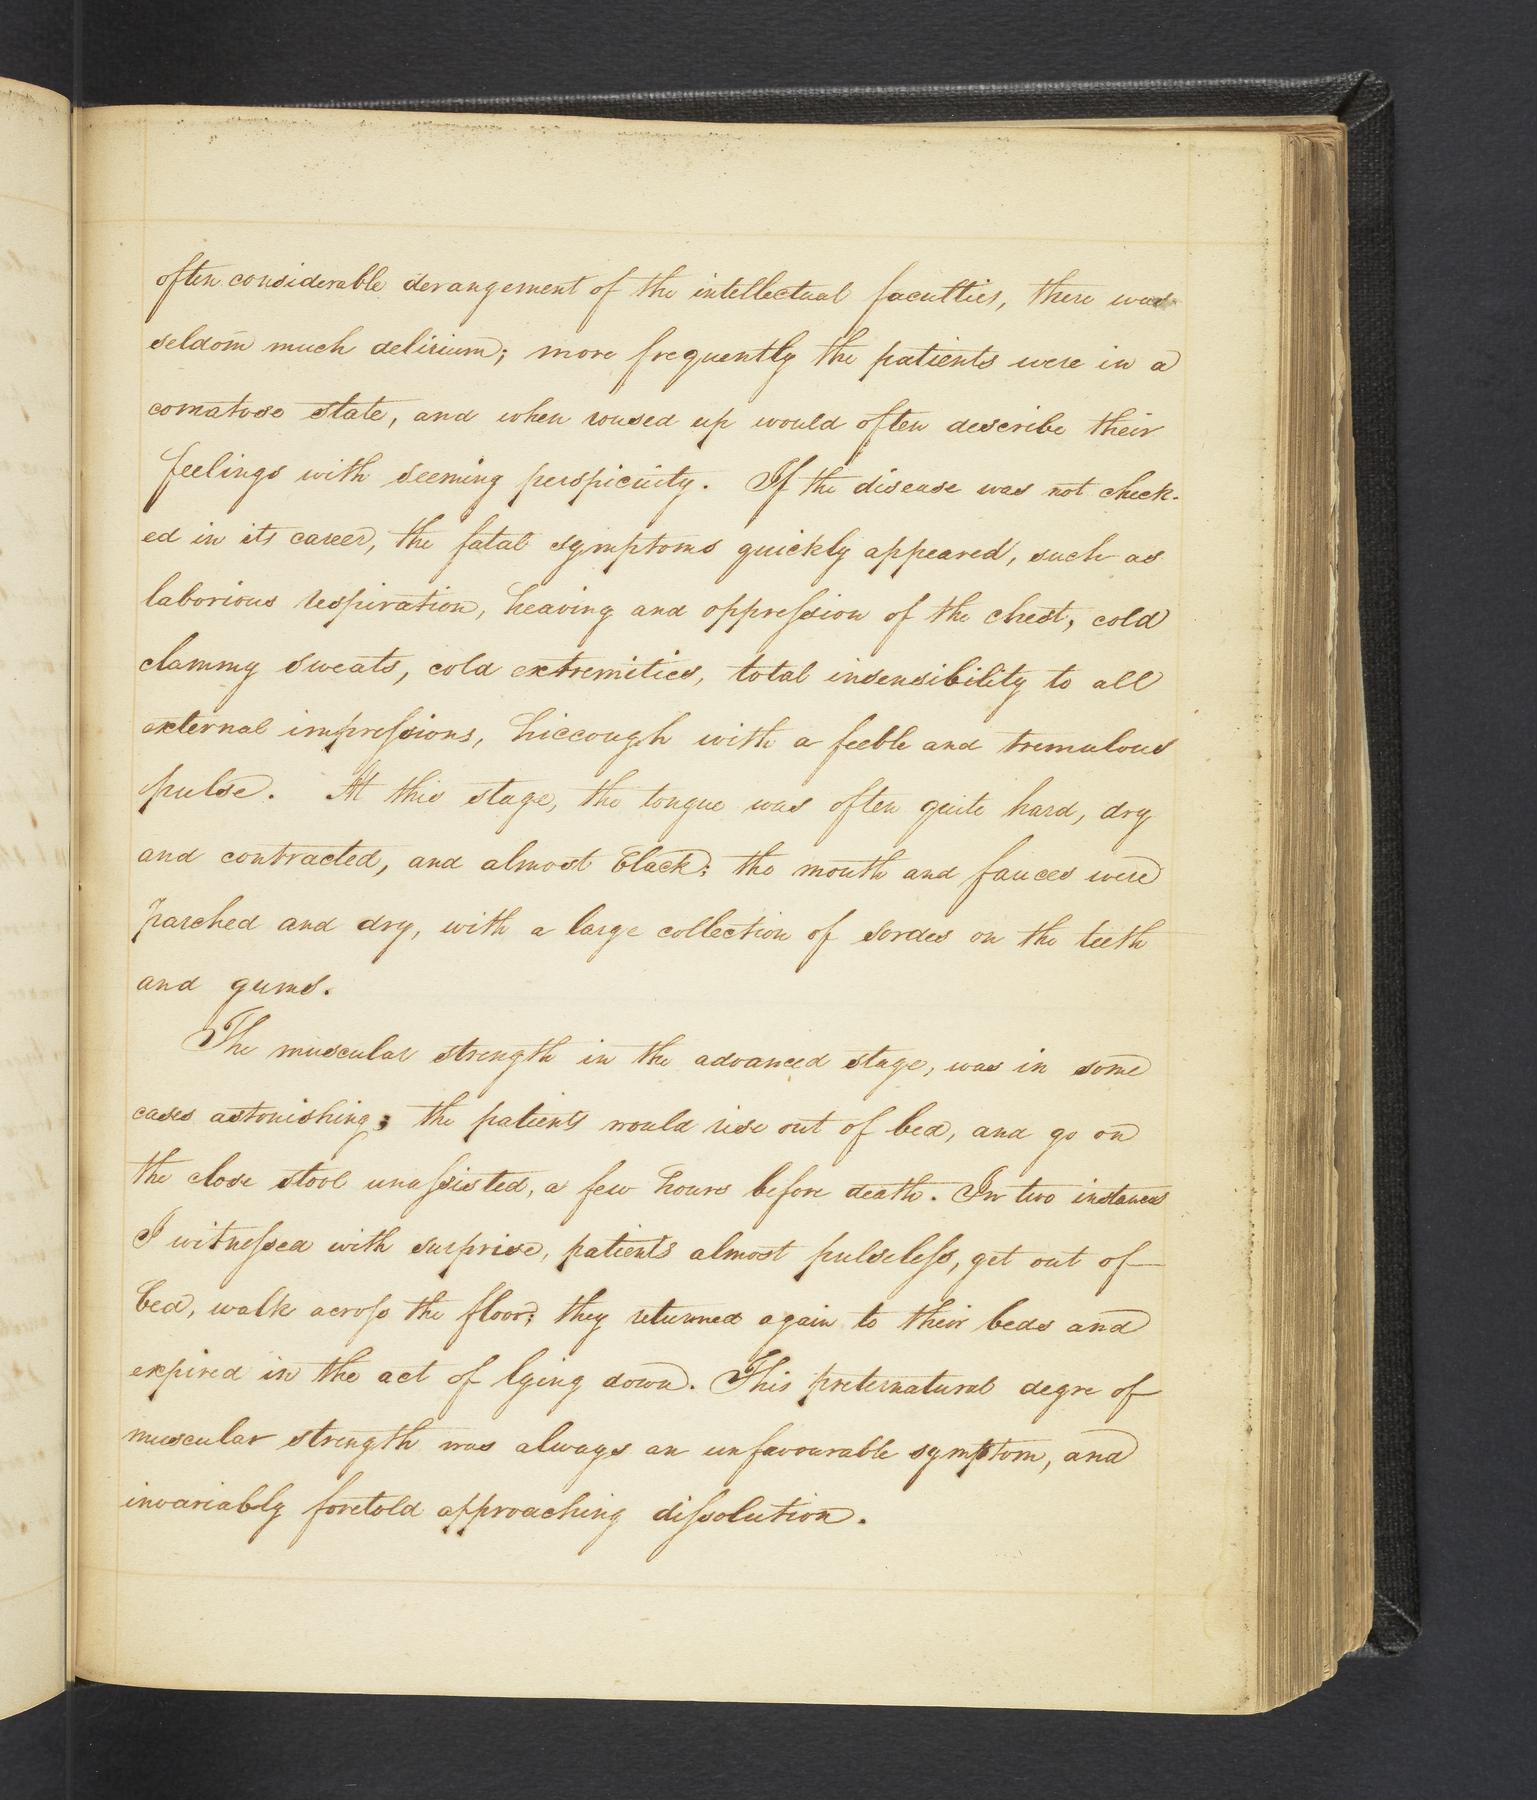 often considerable derangement of the intellectual faculties, there was
seldom much delirium; more frequently the patients were in a
comatose state, and when roused up would often describe their
feelings with seeming perspicuity. If the disease was not check-
ed in its career, the fatal symptoms quickly appeared, such as
laborious respiration, heaving and oppression of the chest, cold
clammy sweats, cold extremities, total insensibility to all
external impressions, hiccough with a feeble and tremulous
pulse. At this stage, the tongue was often quite hard, dry
and contracted, and almost black; the mouth and fauces were
parched and dry, with a large collection of sordes on the teeth
and gums.
The muscular strength in the advanced stage, was in some
cases astonishing; the patients would rise out of bed, and go on
the close stool unassisted, a few hours before death. In two instances
I witnessed with surprise, patients almost pulseless, get out of
bed, walk across the floor; they returned again to their beds and
expired in the act of lying down. This preternatural degre of
muscular strength was always an unfavourable symptom, and
invariably foretold approaching dissolution.